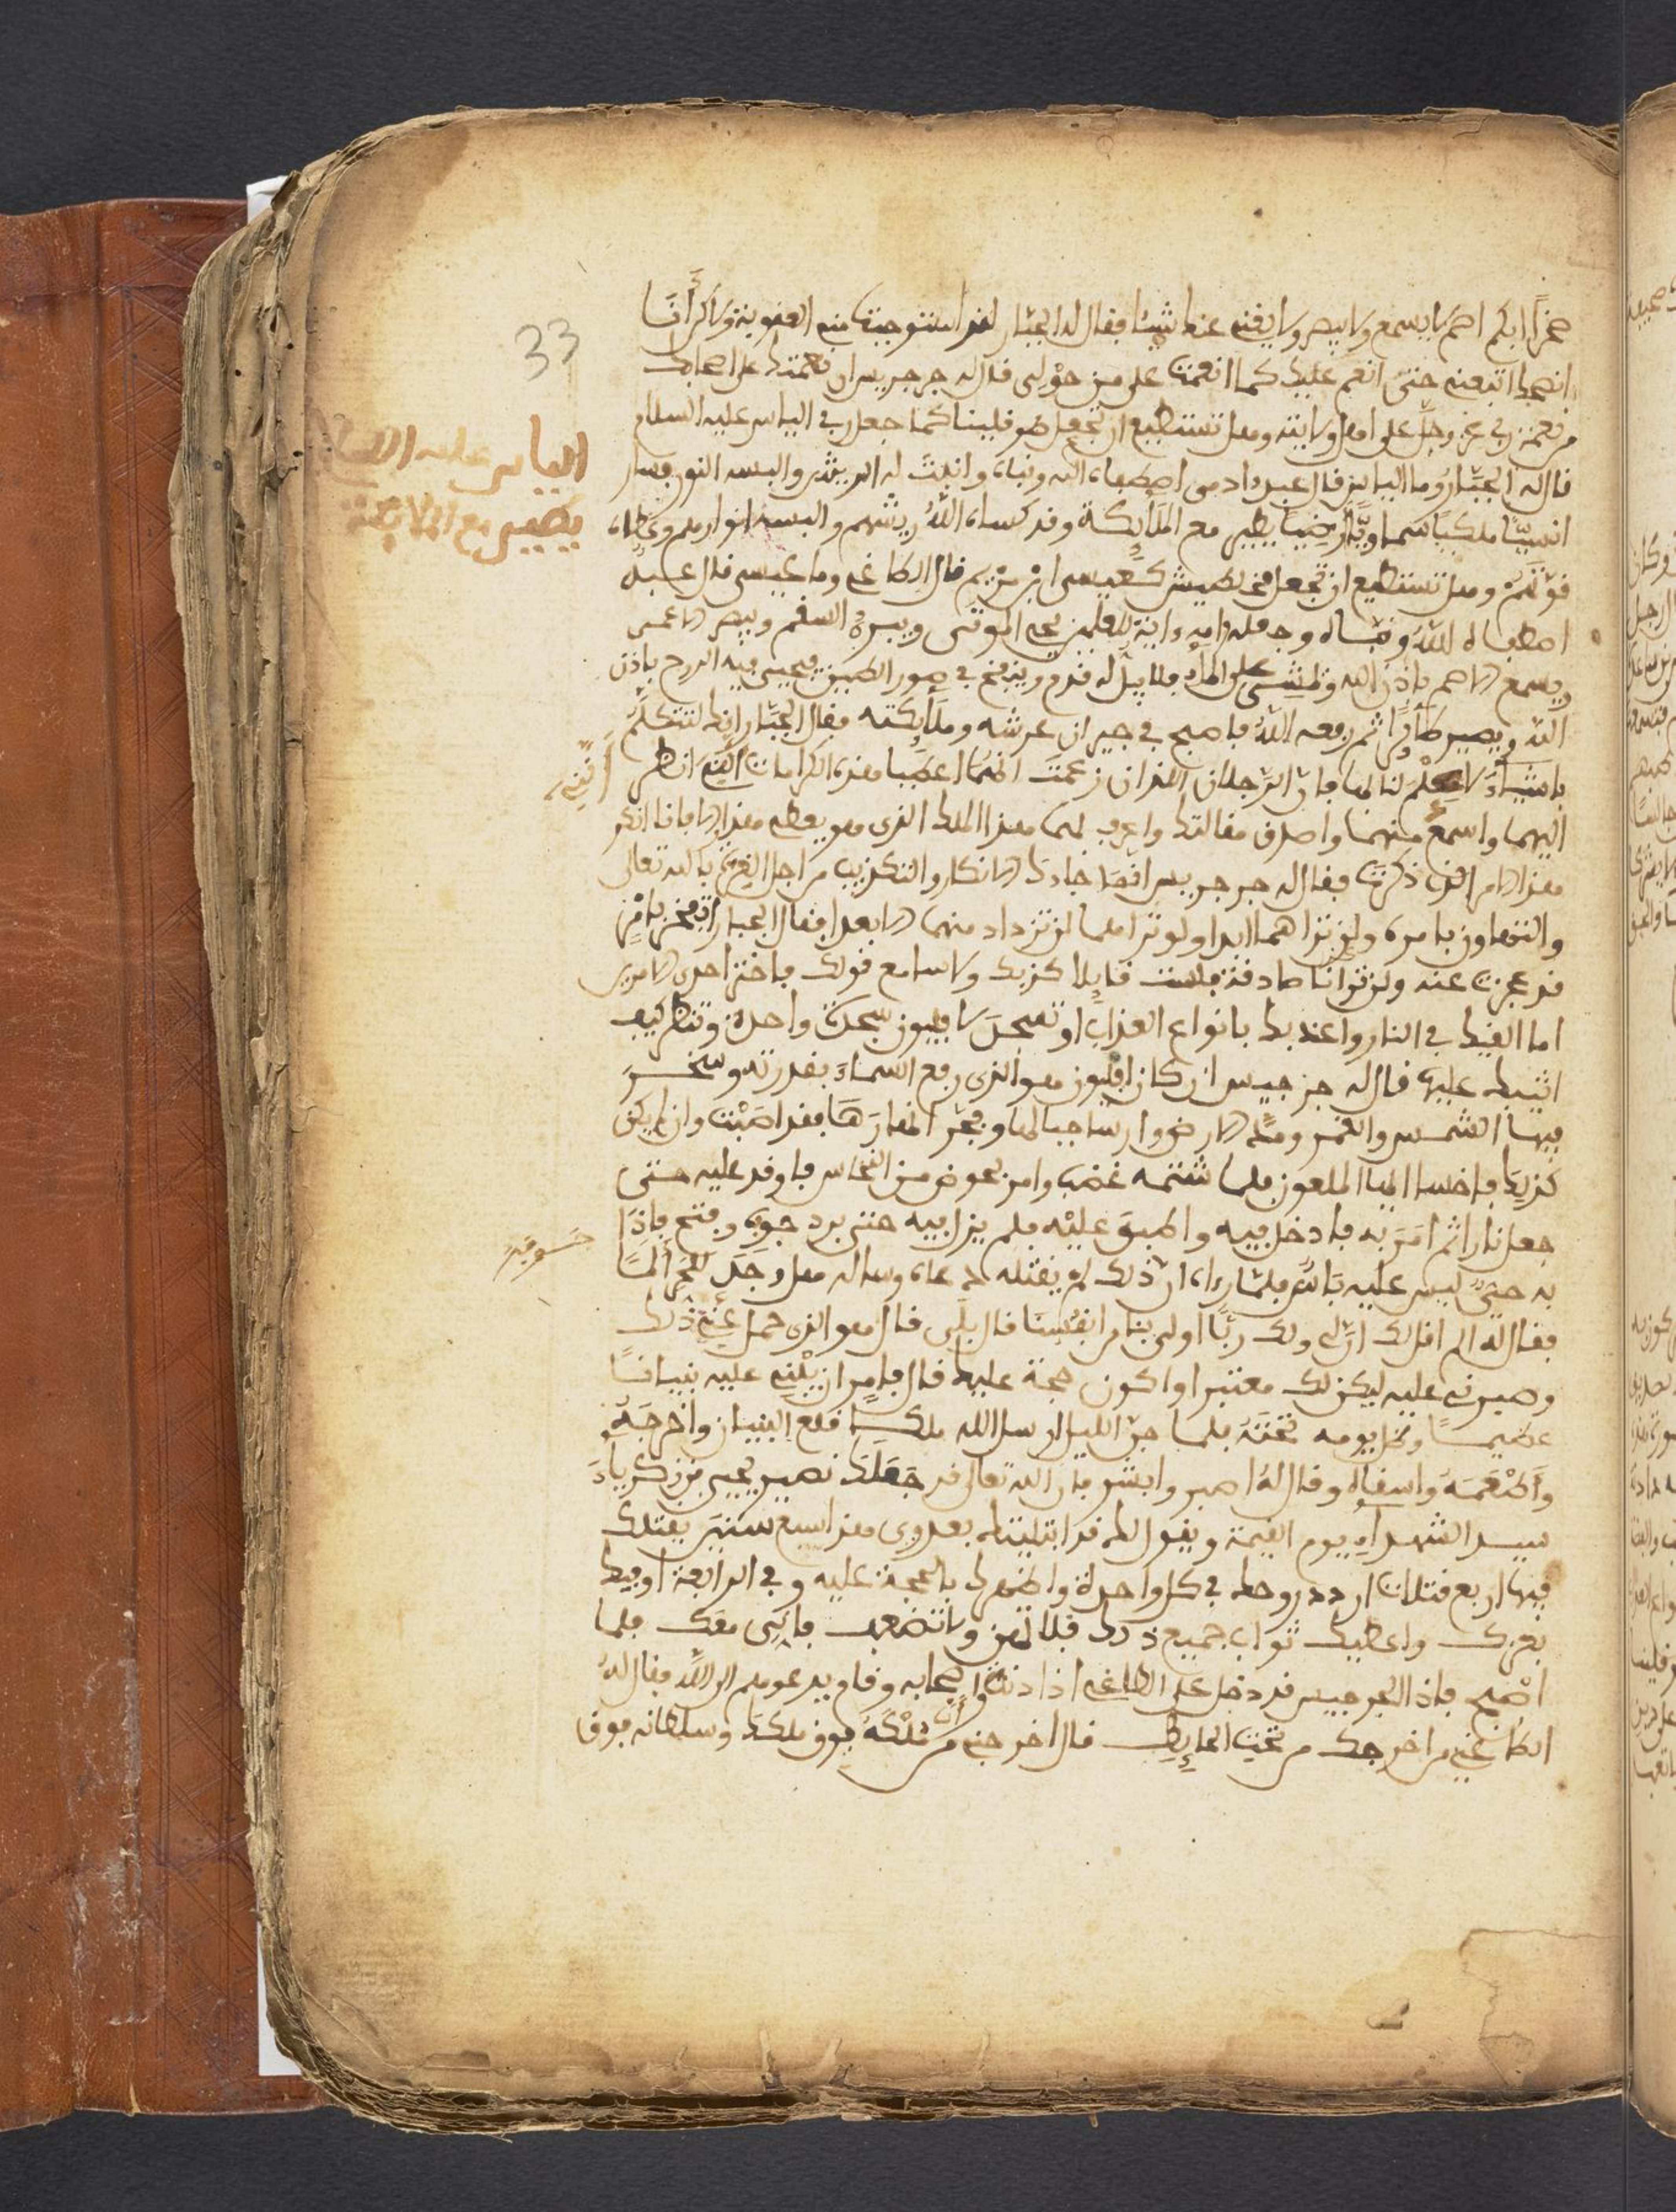 33
الياس عليه السلام
يطير مع الملائكة
حجرا ابكم اصم لا يسمع ولا يبصر ولا يغني عنك شيئا فقال له الجبار لقد استوجبت مني العقوبة ولاكن انا
اتبعني حتى انعم عليك كما انعمت على من حولي قال له جرجيس ان نعمتك على اصحابك
من نعمة ربي عز وجل على اهل ولايته وهل تستطيع ان تجعل كما جعل ربي الياس عليه السلام
قال له الجبار وما الياس قال عبد ادمى اصطفاه الله ونباه وانبت له الريش والبسه النور فصار
انسيا ملكيا سماويا ارضيا يطير مع الملايكة وقد كساه الله ريشهم والبسه انوارهم وغطاه
قوتهم وهل تستطيع ان تجعل كعيسى ابن مريم قال الطاغي وما عيسى قال عبد
اصطفاه الله ونباه وجعله وامه داية للعلمين يحيي الموتى ويبرئ السقم ويبصر الاعمى
ويسمع الاصم باذن الله ويمشي على الماء فلا يبل له قدم وينفخ في صور الطين فيحيى فيه الروح باذن
الله ويصير طايرا ثم رفعه الله فاصبح في جيران عرشه وملايكته فقال الجبار انك لتتكلم
باشياء لا علم لنا بها فاين الرجلان اللذان زعمت انهما اعطيا هذه الكرامات ايتني انظر
اليهما واسمع منهما واصدق مقالتك واعرف لهما هذا الملك الذي هو يعطى هذا الا فانا انكر
هذا الامر الذي ذكرت فقال له جرجيس انما جاءك الانكار والتكذيب من اجل الغرة بالله تعالى
والتهاون بامره ولن تراهما ابدا ولو تراهما لن تزداد منهما الا بعدا فقال الجبار اتيتني بامر
قد عجزت عنه ولن ترانا صادقة فلست قابلا كذبك ولا سامع قولك فاختر احدى الامرين
اما القيك في النار واعذبك بانواع العذاب او تسجد لافليون سجدة واحدة وتنظر كيف
اثيبك عليها قال له جرجيس ان كان افليون هو الذي رفع السماء بقدرته وسخر
فيها الشمس والقمر ومد الارض وارسا جبالها وفجر انهارها فقد اصبت وان لم يكن
كذلك فاخسا ايها الملعون فلما شتمه غضب وامر بحوض من النحاس فاوقد عليه حتى
جعل نارا ثم امر به فادخل فيه واطبق عليه فلم يزل فيه حتى برد جوفه وفتح فاذا
به حي ليس عليه باس فلما راه ان ذلك لم يقتله دعاه وساله هل وجد لحر الما
فقال له الم اقل لك ان لي ولك ربا اولى بنا من انفسنا قال بلى قال هو الذي حمل عني ذلك
وصبرني عليه ليكن لك معتبرا واكون حجة عليك قال فامر ان يبنى عليه بنيانا
عظيما وظل يومه تحته فلما جن الليل ارسل الله ملكا قلع البنيان واخرجه
واطعمه واسقاه وقال له اصبر وابشر فان الله تعالى قد جعلك نصير يحيى بن زكرياء
سيد الشهداء يوم القيمة ويقول لك قد ابتليتك بعدوي هذا سبع سنين يقتلك
فيها اربع قتلات اردد روحك في كل واحدة واظهرك بالحجة عليه وفي الرابعة اوفيك
بعزك واعطيك ثواب جميع ذلك فلا تهن ولا تضعف فاني معك فلما
اصبح فاذا بجرجيس قد دخل على الطاغي اذا واصحابه وقاف يدعوهم الى الله فقال له
الطاغي من اخرجك من تحت الحايط قال اخرجني من ملكه فوق ملكك وسلطانه فوق